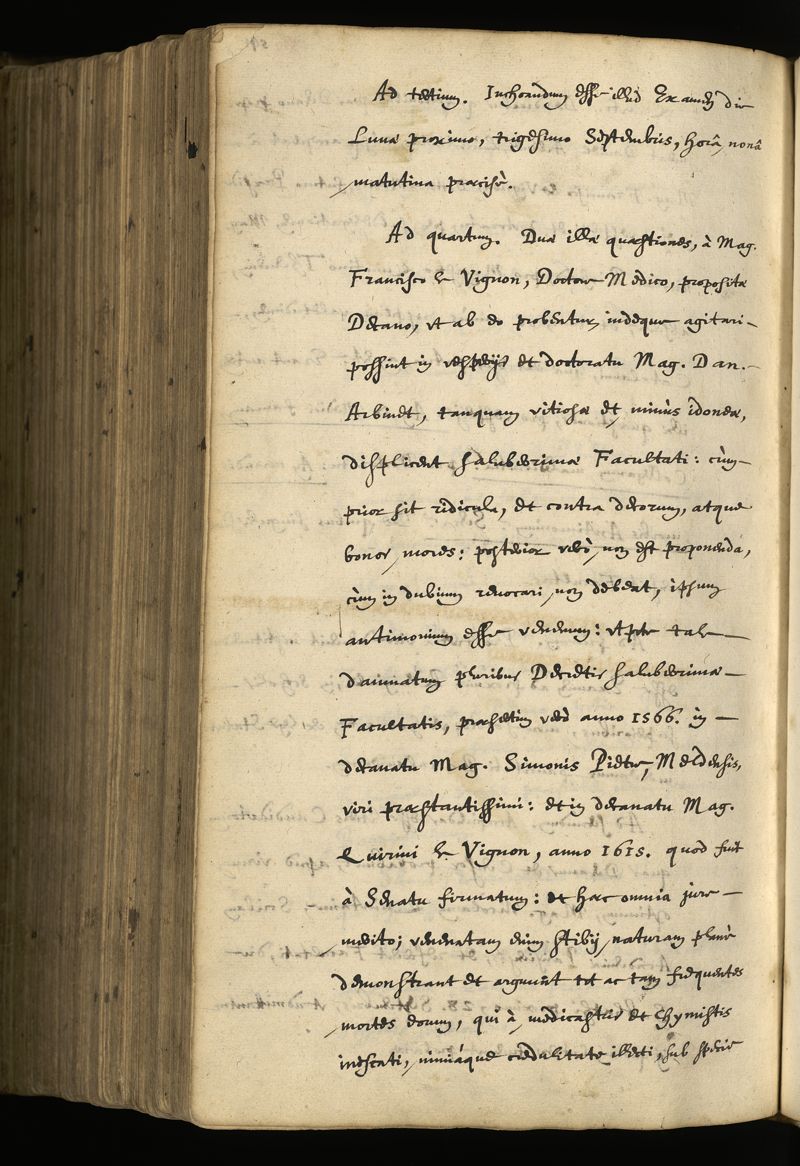 Ad tertium. Inchoandum esse illud Examen die
Lunæ proximo, trigesimo Septembris, horâ nonâ
matutina præcisè.
Ad quartum. Duæ illæ quæstiones, à Mag.
Francisco le Vignon, Doctore Medico, propositæ
Decano, vt ab eo probentur, indeque agitari
possint in vesperijs et doctoratu Mag. Dan.
Arbinet, tanquam vitiosæ et minùs idoneæ,
displicent saluberrimæ Facultati: cùm
prior sit ridicula, et contra decorum, atque
bonos mores: posterior verò non est proponenda,
cùm in dubium reuocari non debeat, ipsum
antimonium esse venenum: vtpote tale
damnatum pluribus Decretis saluberrimæ
Facultatis, præsertim verò anno 1566. in
decanatu Mag. Simonis Pietre, Meldensis,
viri præstantissimi: et in decanatu Mag.
Quirini le Vignon, anno 1615. quod fuit
à Senatu firmatum: et hæc omnia jure
merito; venenatam enim stibij naturam planè
demonstrant et arguunt tot ac tam frequentes
mortes eorum, qui à medicastris et Chymistis
inescati, nimiáque credulitate illecti, sub specie